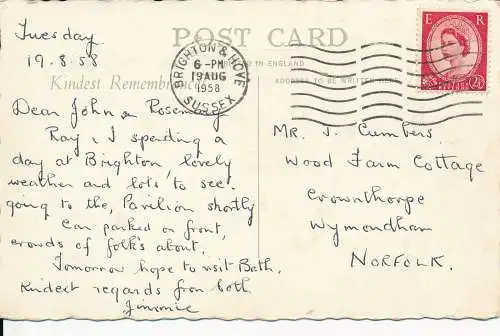 Tuesday
19.8.58
POST CARD
PRINTED IN ENGLAND
Kindest Remembrance
ADDRESS TO BE WRITTEN HERE
BRIGHTON & HOVE
6-PM
19 AUG
1958
SUSSEX
E R
Dear John & Rosemary
Ray & I spending a
day at Brighton, lovely
weather and lots to see.
going to the, Pavilion shortly
Car parked on front,
crowds of folk's about.
Tomorrow hope to visit Bath.
Kindest regards from both
Jimmie
Mr J. Cumbers.
Wood Farm Cottage
Crownthorpe
Wymondham
NORFOLK.